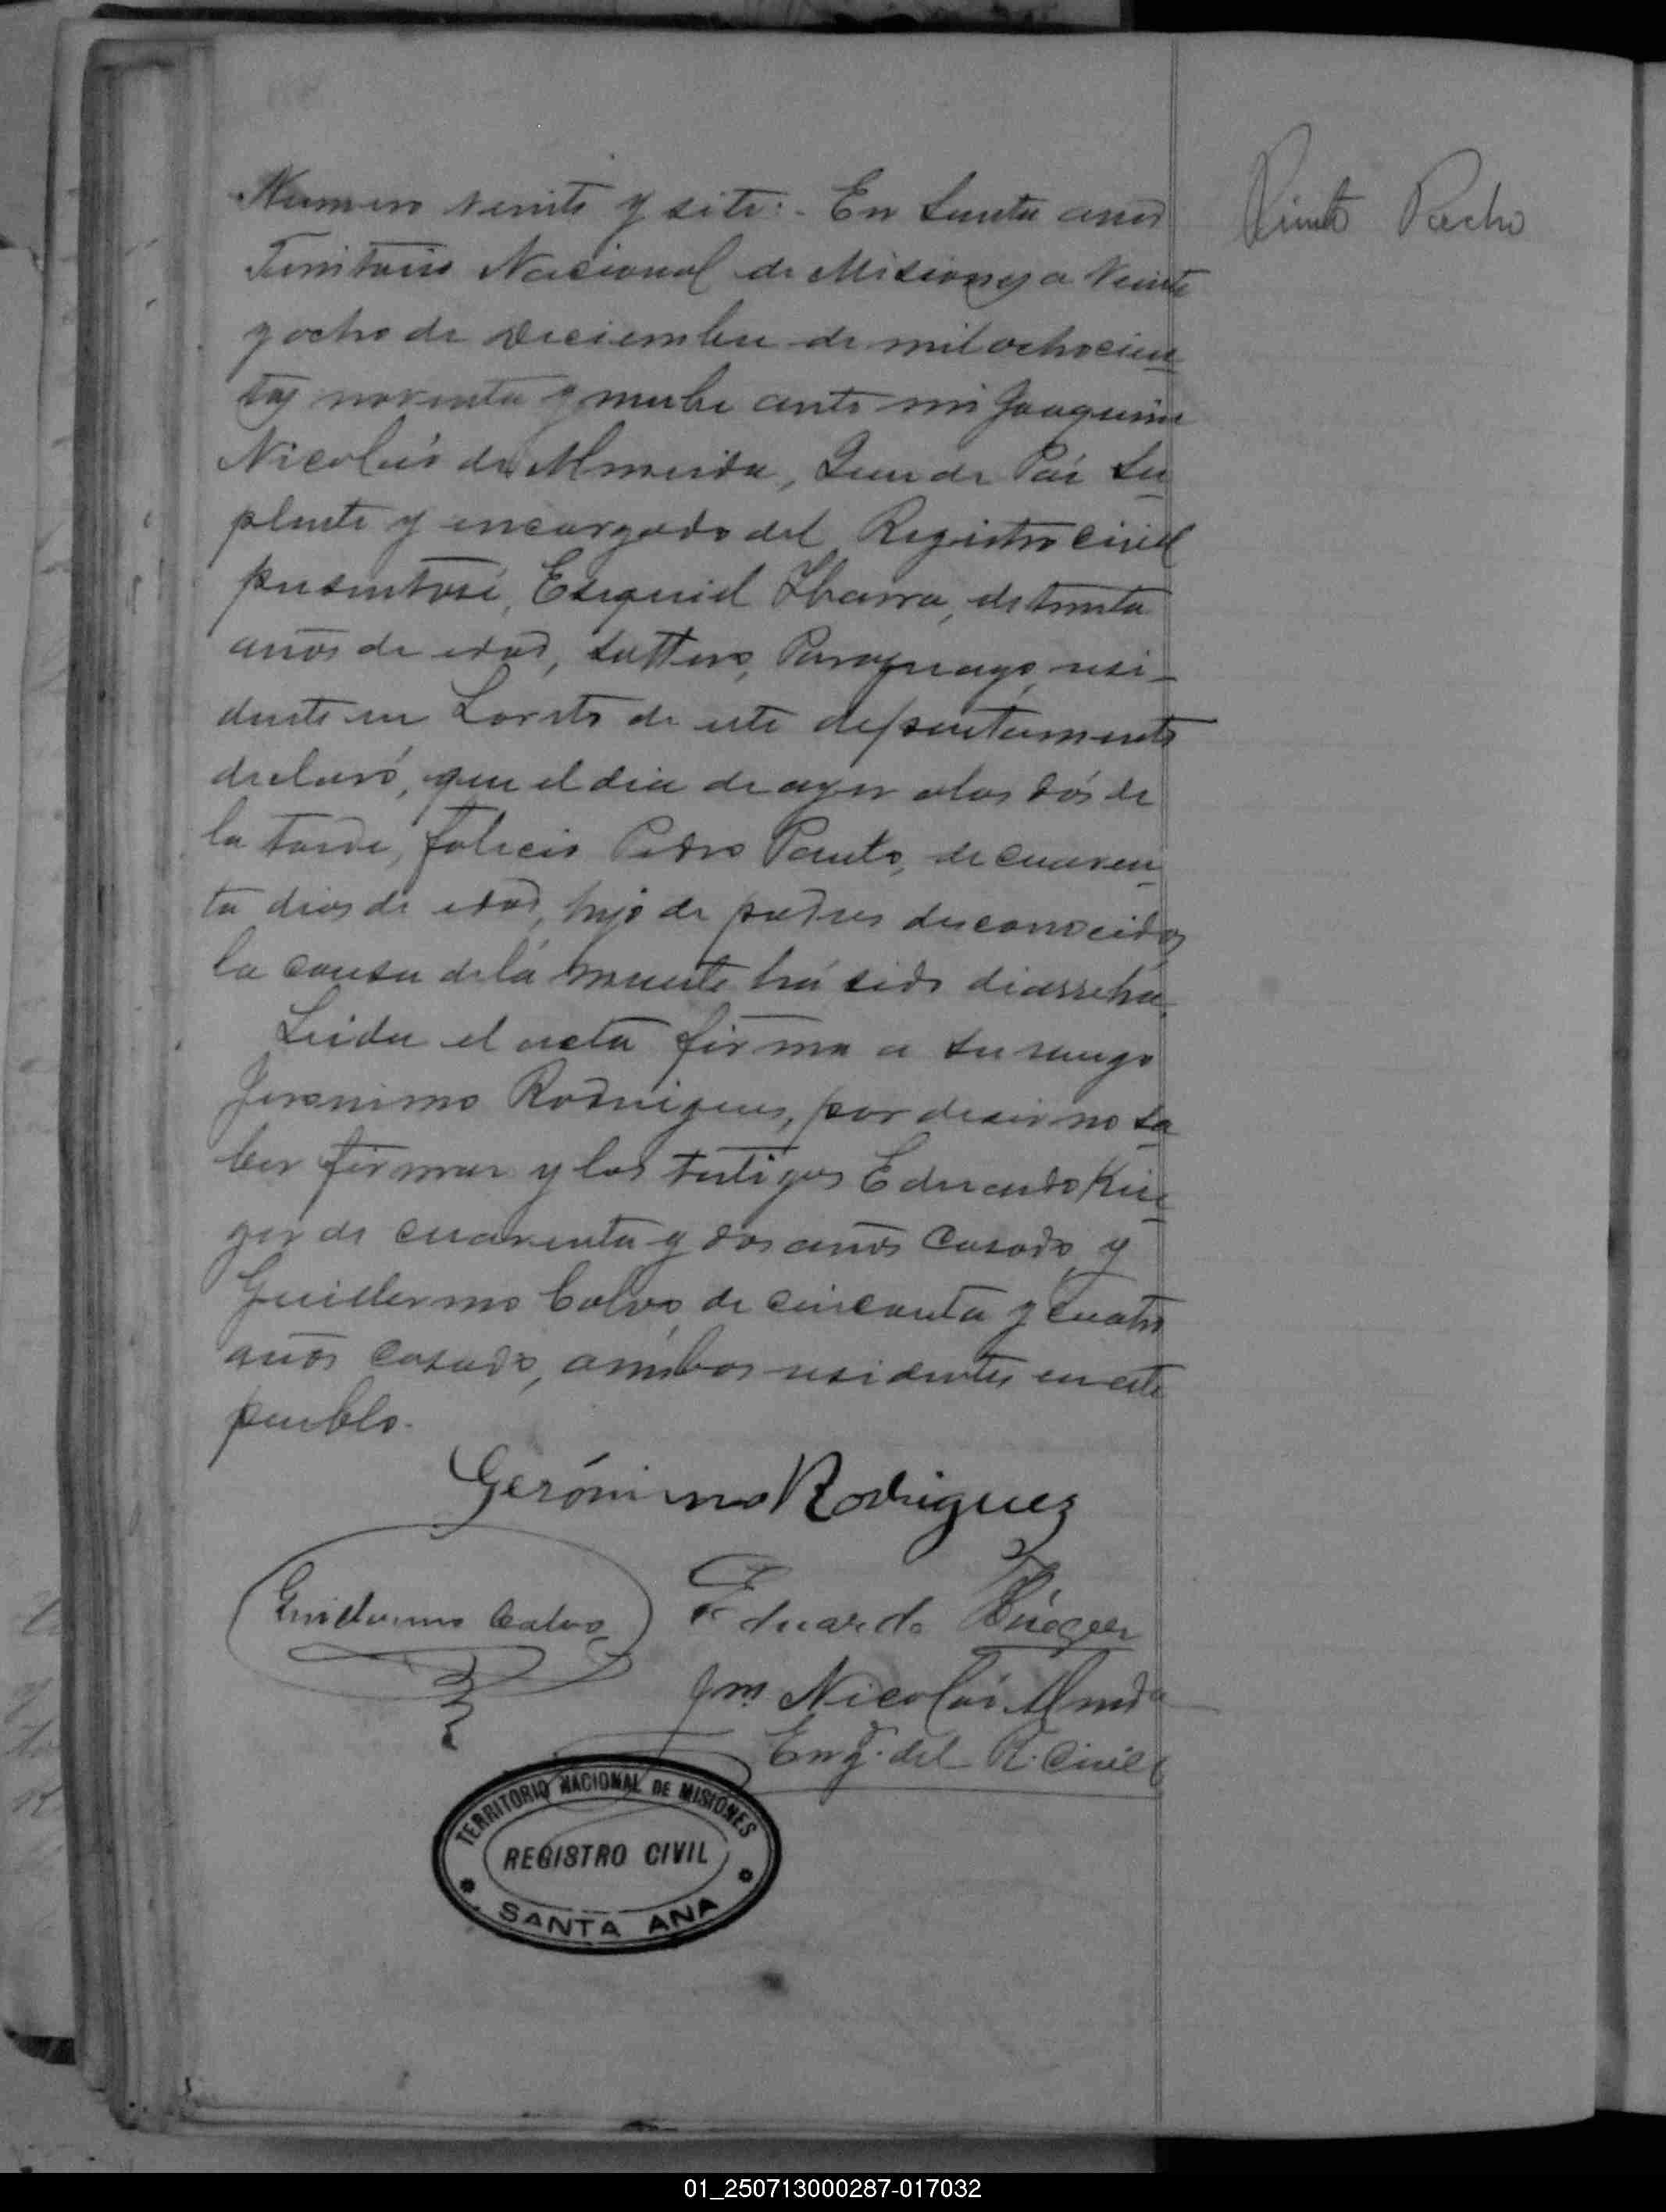 Numero veinte y siete:- En Santa Ana
Territorio Nacional de Misiones a Veinte
y ocho de Deciembre de mil ochocien
tos noventa y nuebe ante mi Joaquim
Nicolás de Almeida, Juez de Páz Su
plente y encargado del Registro civil
presentose, Esequiel Ybarra, de treinta
años de edad, solttero, Paraguayo, resi-
dente en Loreto de este departamento
declaró, que el dia de ayer a las dós de
la tarde, falecio Pedro de cuaren
ta dias de edad, hijo de padres desconocidos
la causa de lá muerte há sido diarreha.
Leida el acta firma a su ruego
Jeronimo Rodrigues, por desir no sa
ber firmar y los testigos Eduardo Krie
ger de cuarenta y dos años Casado, y
Guillermo Calvo, de cincuenta y cuatro
años casado, ambos residentes en este
pueblo.
Gerónimo Rodriguez
Guillermo Calvo
Eduardo Krieger
Jm Nicolás Almda
Eng. del R. Civil
TERRITORIO NACIONAL DE MISIONES
REGISTRO CIVIL
SANTA ANA
01_250713000287-017032